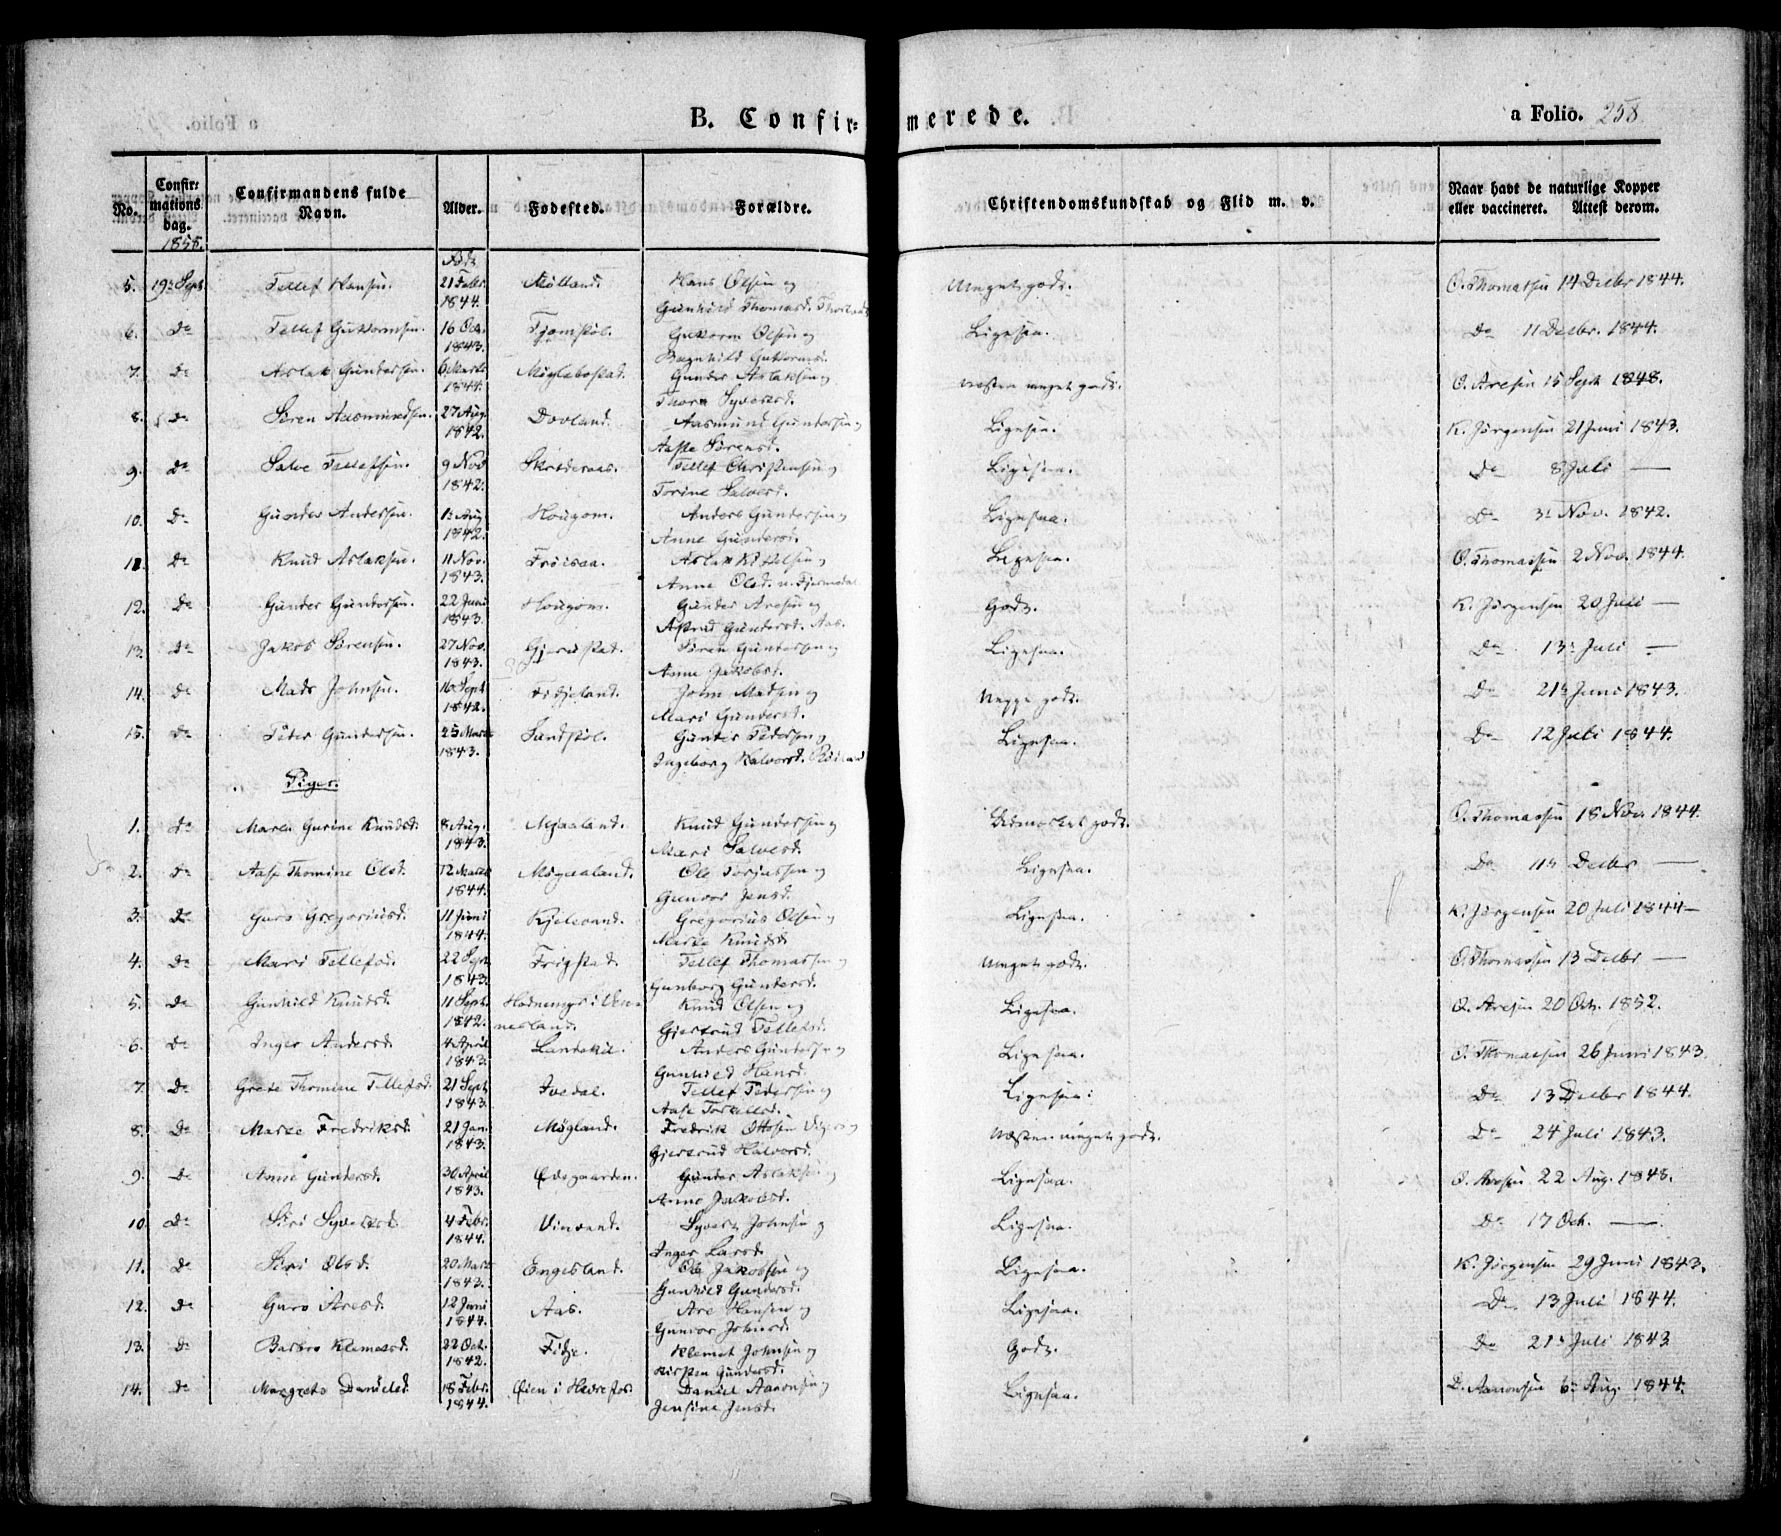 B. Confir=merede.
a Folio. 258
No. Confirmations dag. Confirmandens fulde Navn. Alder. Fødested. Forældre. Christendomskundskab og Flid m. v. Naar havt de naturlige Kopper eller vaccineret. Attest derom.
5. 19: Sept Tellef Hansen. 21 Febr. 1844. Mølland. Hans Olsen og Gunhild Thomasd. Meget godt. O. Thomassen 14 Decbr 1844.
6. Do Tellef Guttormsen. 16 Oct. 1843. Guttorm Olsen og Ragnhild Guttormsd. Ligesaa. Do 11 Decbr. 1844.
7. Do Aslak Gundersen. 6 Marts 1844. Møglebostad. Gunder Aslaksen og Syversd. Næsten meget godt. O. Aresen 15 Sept 1848.
8. Do Søren Aasmundsen. 27 Aug. 1842. Dovland. Aasmund Gundersen og Aaste Sørensd. Ligesaa. K. Jørgensen 21 Juni 1843.
9. Do Salve Tellefsen. 9 Nov 1842. Skrøderaas. Tellef Christensen og Torine Salvesd. Ligesaa. Do 8 Juli —
10. Do Gunder Andersen. 1: Aug 1842. Hougom. Anders Gundersen og Anne Gundersd. Ligesaa. Do 3: Nov. 1842.
11. Do Knud Aslaksen. 11 Nov. 1843. Frøisaa. Aslak Kittelsen og Anne Olsd. Ligesaa. O. Thomassen 2 Nov. 1844.
12. Do Gunder Gundersen. 22 Juni 1843. Hougom. Gunder Aresen og Astrid Gundersd. Aas. Godt. K. Jørgensen 20 Juli —
13. Do Jakob Sørensen. 27 Nov. 1843. Gjerustad. Søren Gundersen og Anne Jakobsd. Ligesaa. Do 13: Juli —
14. Do Mads Johnsen. 16 Sept 1842. Fidjeland. John Madsen og Mari Gundersd. Neppe godt. Do 21: Juni 1843.
15. Do Peder Gundersen. 25 Marts 1843. Sandskol. Gunder Pedersen og Ingeborg Halvorsd. Ligesaa. Do 12 Juli 1844.
Piger.
1. Do Maren Gurine Knudsd. 8 Aug. 1843. Mjaaland. Knud Gundersen og Mari Salvesd. Udmærket godt. O. Thomassen 18 Nov. 1844.
2. Do Aase Thomine Olsd. 12 Marts 1844. Møgaaland. Ole Torjussen og Gunvor Jensd. Ligesaa. Do 11: Decbr —
3. Do Guro Gregoriusd. 11 Juni 1844. Kjelevand. Gregorius Olsen og Maree Knudsd Ligesaa. K. Jørgensen 20 Juli 1844 —
4. Do Mari Tellefsd. 22 Sept 1843. Frigstad. Tellef Thomassen og Gunborg Gundersd. Meget godt. O. Thomassen 13 Decbr —
5. Do Gunhild Knudsd. 11 Sept. 1842. Hodnings i Vennesland. Knud Olsen og Gjertrud Tellefsd. Ligesaa. O. Aresen 20 Oct. 1852.
6. Do Inger Andersd. 4 April 1843. Landskil. Anders Gundersen og Gunhild Hansd. Ligesaa. O. Thomassen 26 Juni 1843.
7. Do Grete Thomine Tellefsd. 21 Sept 1843. Ivedal. Tellef Pedersen og Aase Torkelsd. Ligesaa. Do 13 Decbr 1844.
8. Do Maree Fredriksd. 21 Jan. 1843. Møgland. Fredrik Ottosen og Gjertrud Halvorsd. Næsten meget godt. Do 24 Juli 1843.
9. Do Anne Gundersd. 30 April 1843. Ødegaarden. Gunder Aslaksen og Anne Jakobsd. Ligesaa. O. Aresen 22 Aug. 1848.
10. Do Siri Syversd. 4 Febr. 1844. Vinvand. Syvert Johnsen og Inger Larsd. Ligesaa. Do 17 Oct. —
11. Do Siri Olsd. 20 Marts 1843. Engesland. Ole Jakobsen og Gunhild Gundersd. Ligesaa. K. Jørgensen 29 Juni 1843.
12. Do Guro Aresd. 12 Juni 1844. Aas. Are Hansen og Gunvor Johnsd. Ligesaa. Do 13 Juli 1844.
13. Do Barbro Klemetsd. 22 Oct. 1842. Fidje. Klemet Johnsen og Kirsten Gundersd. Godt. Do 21: Juli 1843
14. Do Margrete Danielsd. 18 Febr. 1844. Øien i Herefos. Daniel Aaronsen og Jensine Jensd. Ligesaa. D. Aaronsen 6: Aug. 1844.